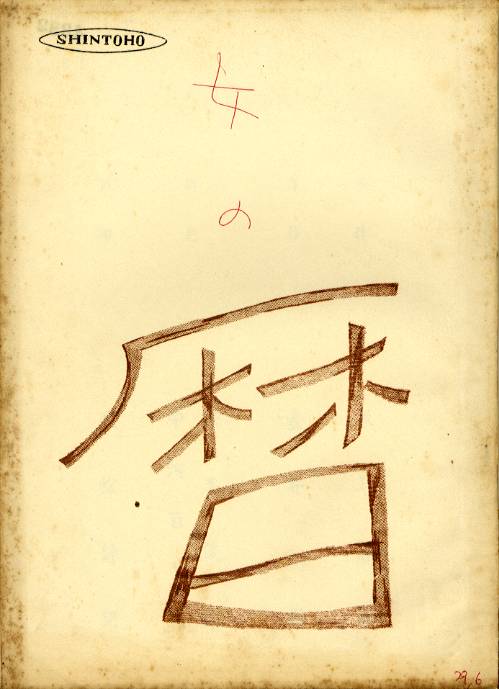 SHINTOHO
女
の
暦
29.6